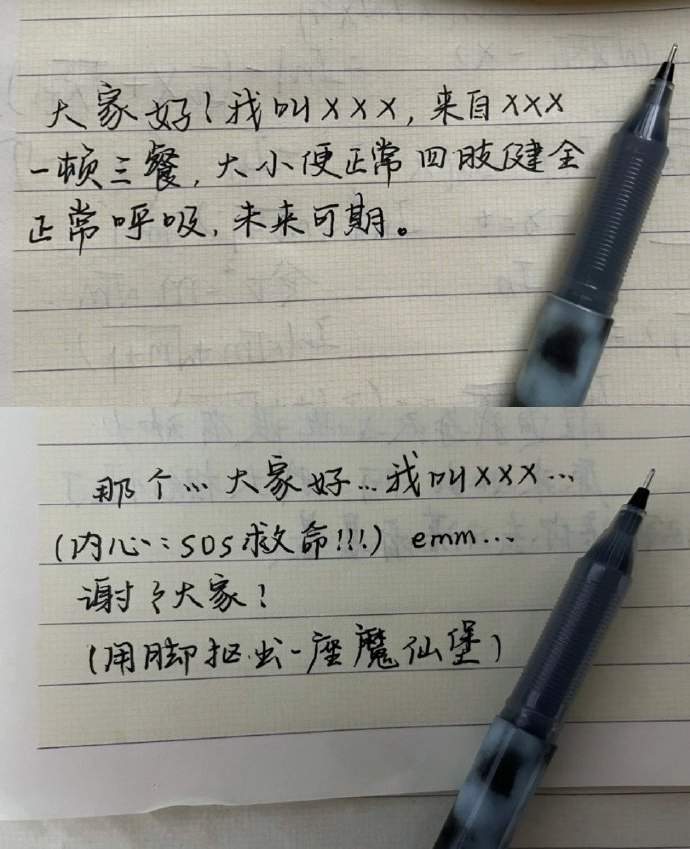 大家好！我叫XXX，来自XXX
一顿三餐，大小便正常 四肢健全
正常呼吸，未来可期。
那个…大家好…我叫XXX…
(内心：SOS救命!!!) emm…
谢谢大家！
(用脚抠出一座魔仙堡)